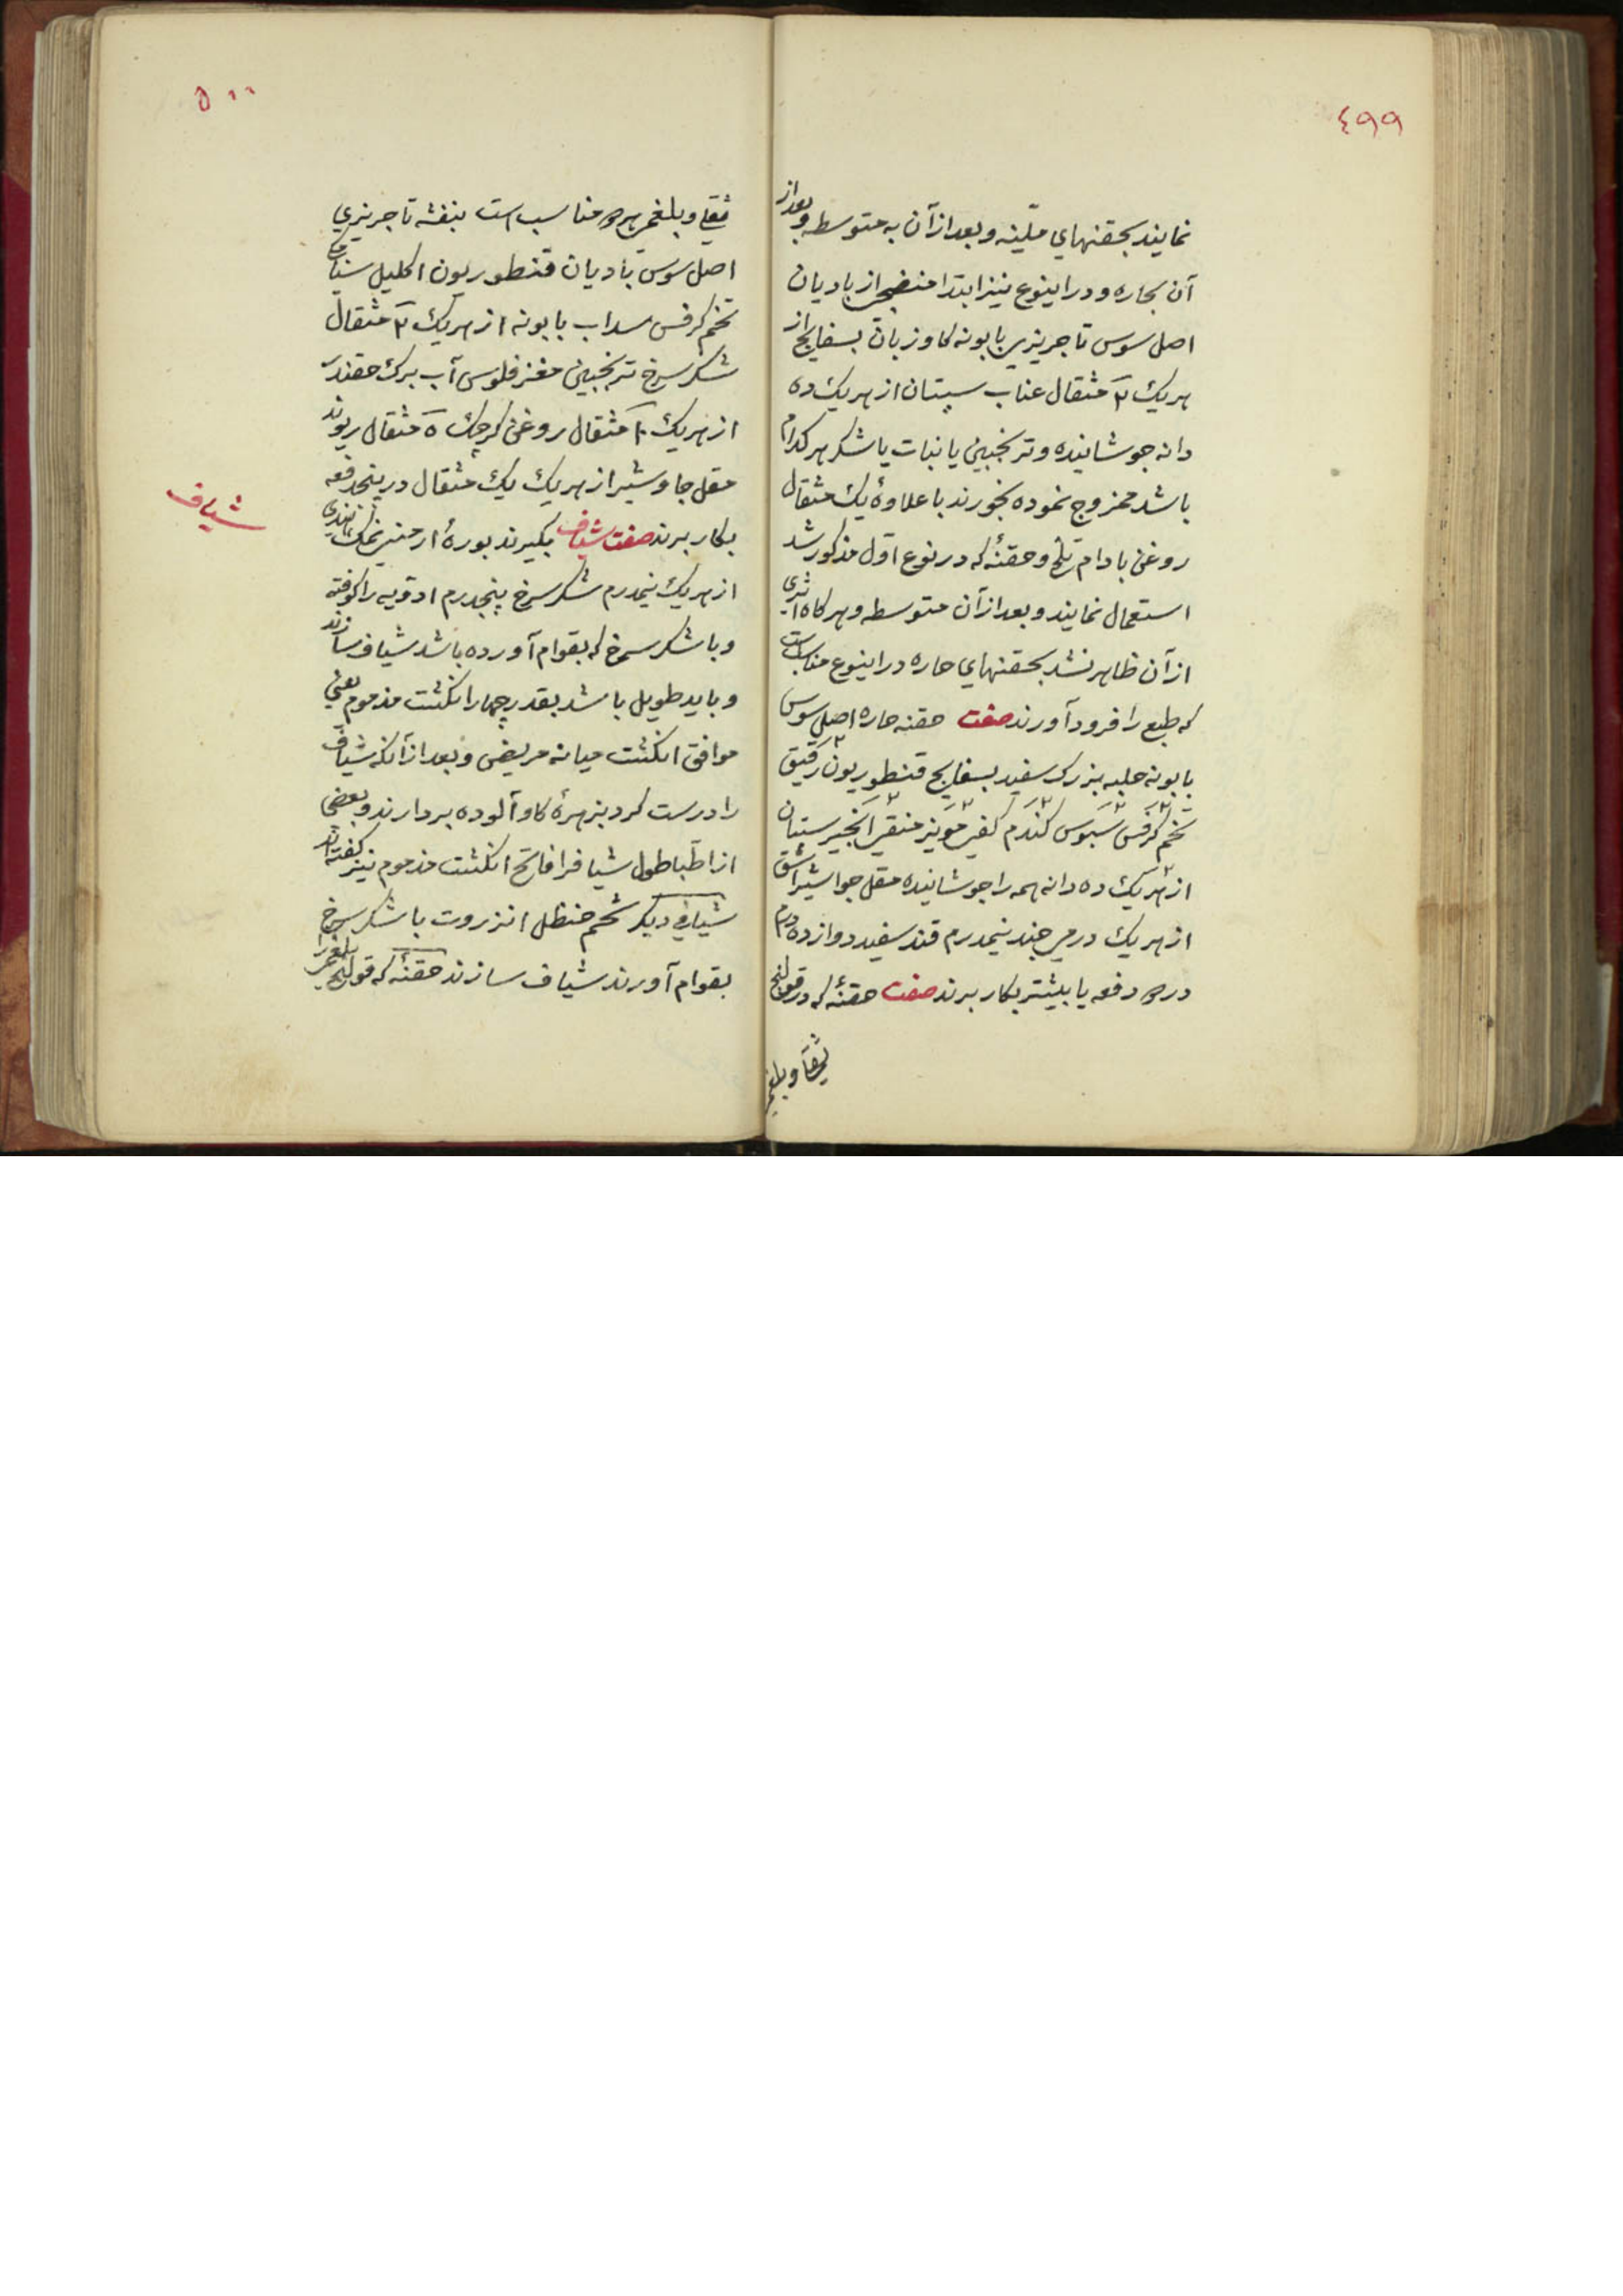 ٤٩٩
نمایند بحقنهاي ملّینه و بعد از آن به متوسطه و بعد از
آن بحاره و در اینوع نیز ابتدا منضجی از بادیان
اصل سوس تاجریزی بابونه کاوزبان بسفایج از
هریک ۲ مثقال عناب سپتان از هریک ده
دانه جوشانیده و ترنجبین یا نبات یا شکر هرکدام
باشد ممزوج نموده بخورند با علاوهٔ یک مثقال
روغن بادام تلخ و حقنهٔ که در نوع اوّل مذکور شد
استعمال نمایند و بعد از آن متوسطه و هرکاه اثری
از آن ظاهر نشد بحقنهاي حاره در اینوع مناسبست
که طبع را فرود آورند صفت حقنه حاره اصل سوس
بابونه حلبه بزرک سفید بسفایج قنطوریون رقیق
تخم کرفس سبوس کندم کفی مویز منقی انجیر سپتان
از هریک ده دانه همه را جوشانیده مقل جواشیر اشق
از هریک درمی جند نیمدرم قند سفید دوازده درم
در دفعه یا بیشتر بکار برند صفت حقنهٔ که در قولنج
ثفلی و بلغمی
٥٠٠
ثفلي و بلغمی هردو مناسب است بنفشه تاجریزي
اصل سوس بادیان قنطوریون اکلیل سنا
تخم کرفس سداب بابونه از هریک ۲ مثقال
شکر سرخ ترنجبین مغز فلوس آب برک حقندر
از هریک ۱۰ مثقال روغن کرچک ۵ مثقال ریوند
مقل جاوشیر از هریک یک مثقال در پنجدفعه
بکار برند صفت شیاف بکیرند بورهٔ ارمنی نمک هندی
شیاف
از هریک نیمدرم شکر سرخ پنجدرم ادویه را کوفته
و با شکر سرخ که بقوام آورده باشد شیاف سازند
و باید طویل باشد بقدر چهار انکشت مذموم یعنی
موافق انکشت میانه مریض و بعد از آنکه شیاف
را درست کرد بزهرهٔ کاو آلوده بردارند و بعضی
از اطبا طول شیاف را فاتح انکشت مذموم نیز کفته‌اند
شیافی دیکر شحم حنظل انزروت با شکر سرخ
بقوام آورند شیاف سازند حقنهٔ که قولنج بلغمی را